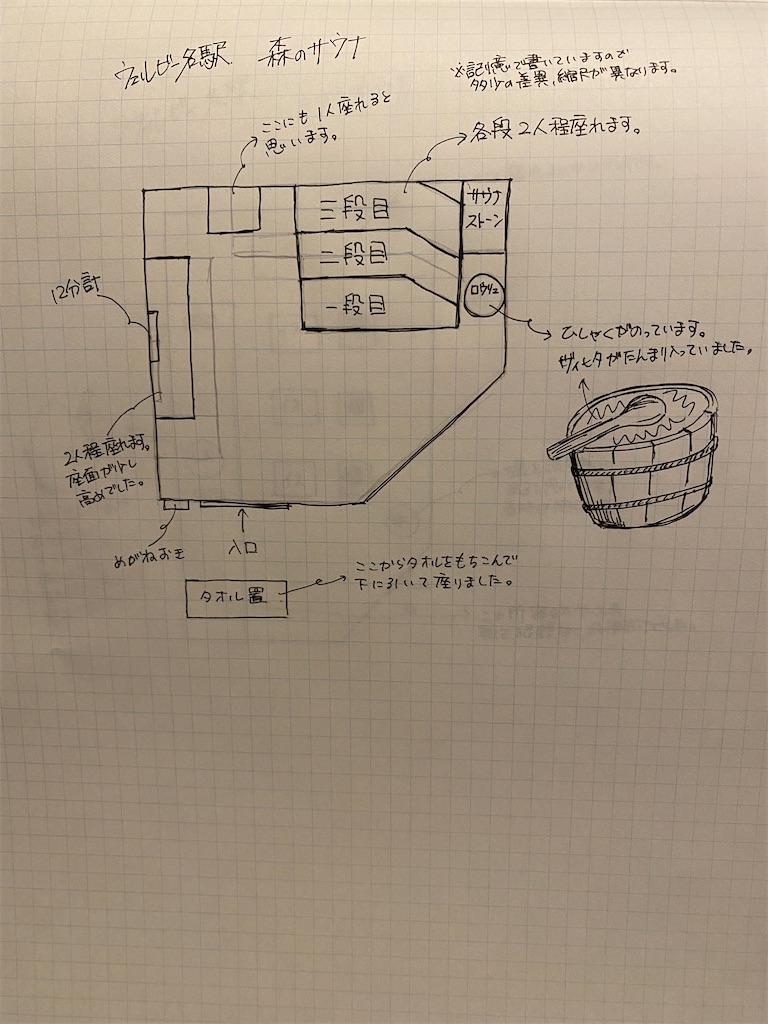 ウェルビー名駅 森のサウナ
※記憶で書いていますので
多少の差異、縮尺が異なります。
ここにも1人座れると
思います。
各段2人程座れます。
三段目
二段目
一段目
サウナ
ストーン
ロウリュ
12分計
ひしゃくがのっています。
ヴィヒタがたんまり入っていました。
2人程座れます。
座面が少し
高めでした。
めがねおき
入口
タオル置
ここからタオルをもちこんで
下に引いて座りました。